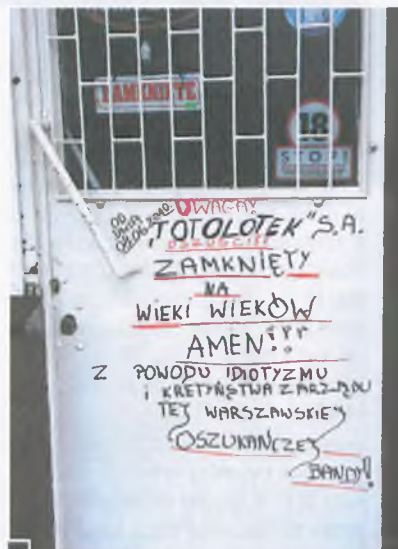 ZAMKNIĘTE
18
STOP!
UWAGA!
OD
DNIA
"TOTOLOTEK" S.A.
ZAMKNIĘTY
NA
WIEKI WIEKÓW
AMEN!!!
Z POWODU IDIOTYZMU
i KRETYŃSTWA ZARZĄDU
TEJ WARSZAWSKIEJ
OSZUKAŃCZEJ
BANDY!